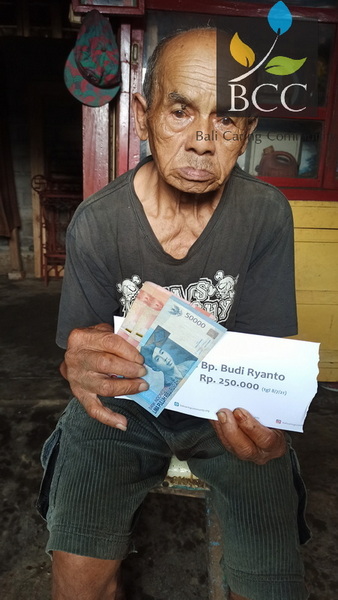 BCC
Bali Caring Com
50000
Bp. Budi Ryanto
Rp. 250.000